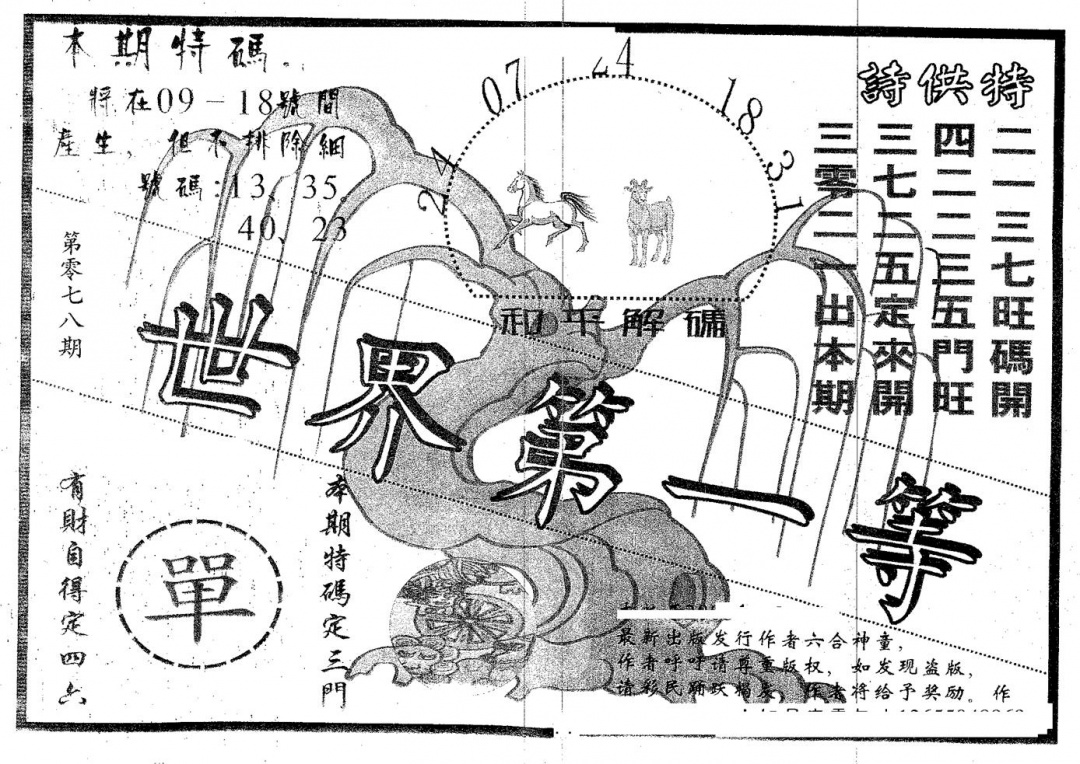 本期特碼。
將在09-18號間
產生，但不排除細
號碼:13、35、
40、23
第零七八期
07
24
18
31
24
特供詩
二一三七旺碼開
四二二三五門旺
三七二五定來開
三零二一出本期
世界第一等
有財自得定四六
單
本期特碼定三門
最新出版发行作者六合神童，
作者呼呼请尊重版权，如发现盗版，
请彩民踊跃揭发，作者将给予奖励。作